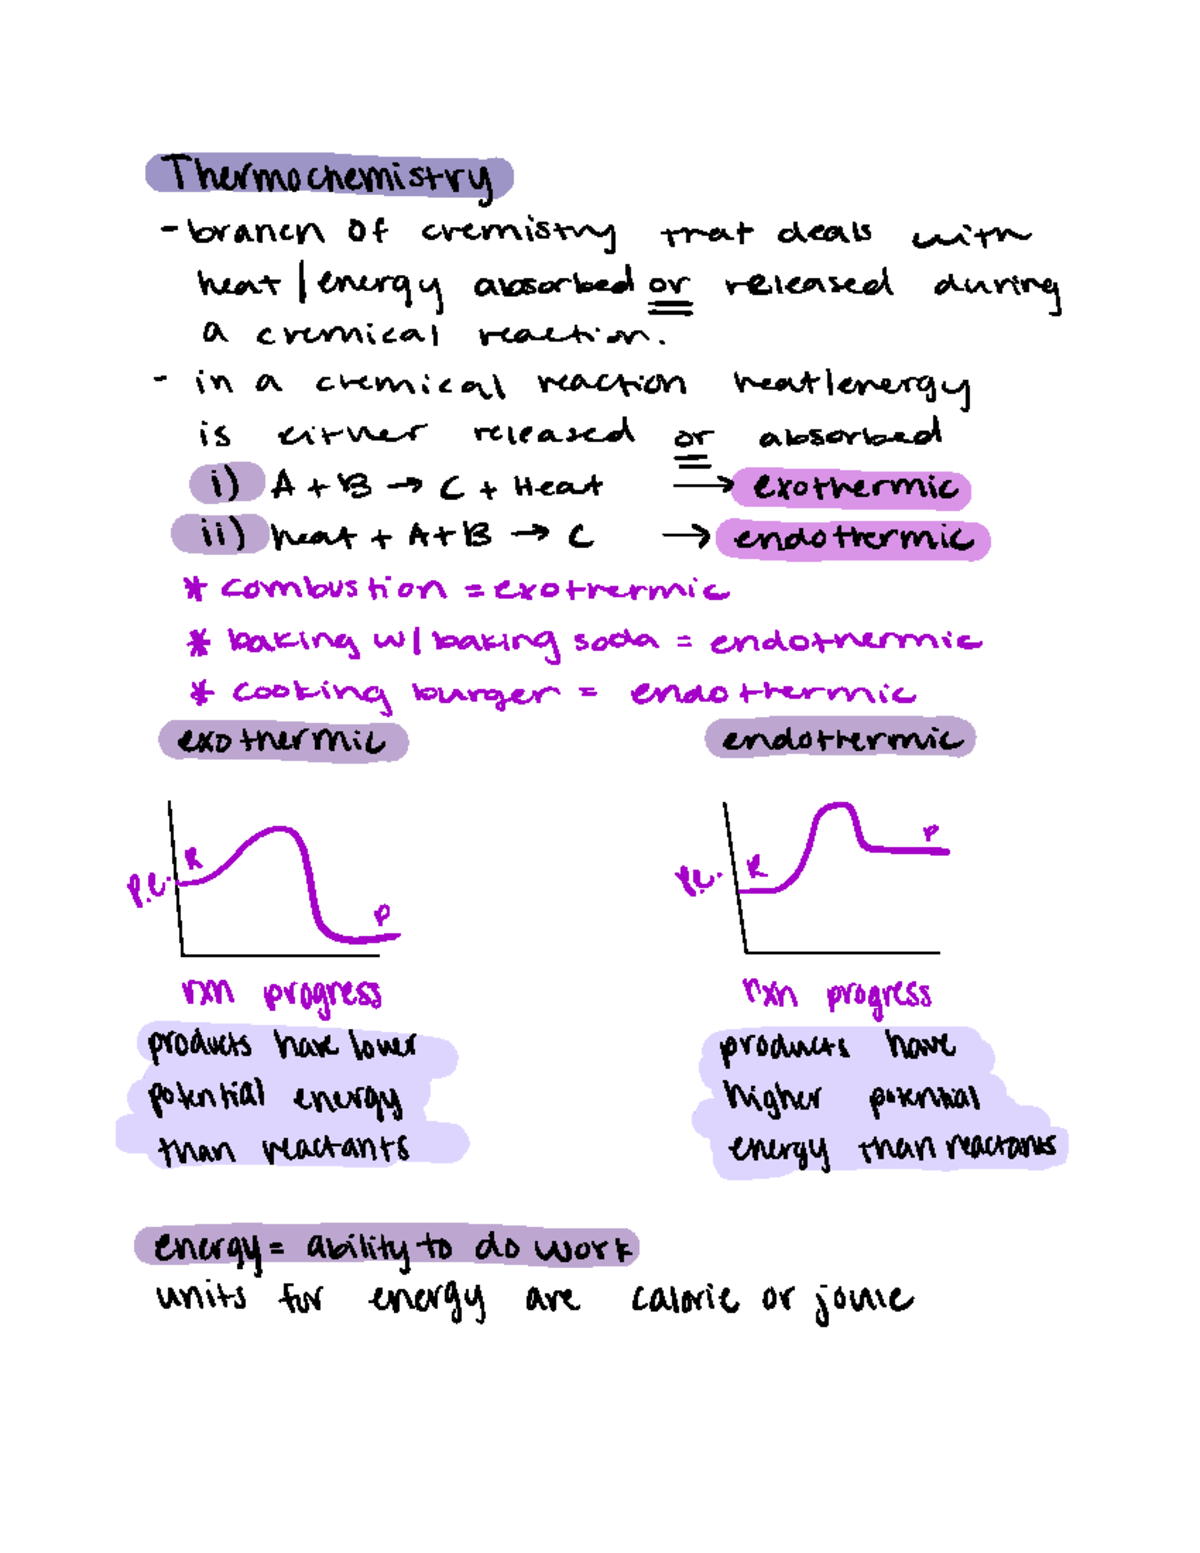 Thermochemistry
- branch of chemistry that deals with
heat/energy absorbed or released during
a chemical reaction.
- in a chemical reaction heat/energy
is either released or absorbed
i) A + B → C + Heat → exothermic
ii) heat + A + B → C → endothermic
* combustion = exothermic
* baking w/ baking soda = endothermic
* cooking burger = endothermic
exothermic endothermic
P.E. R P P.E. R P
rxn progress rxn progress
products have lower products have
potential energy higher potential
than reactants energy than reactants
energy = ability to do work
units for energy are calorie or joule